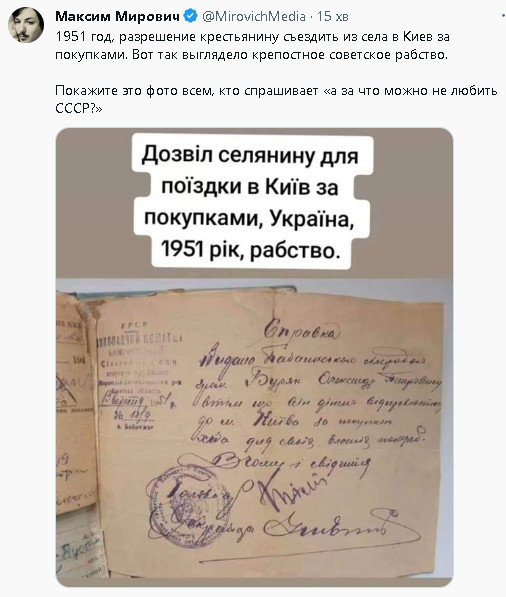 Максим Мирович @MirovichMedia · 15 хв
1951 год, разрешение крестьянину съездить из села в Киев за
покупками. Вот так выглядело крепостное советское рабство.
Покажите это фото всем, кто спрашивает «а за что можно не любить
СССР?»
Дозвіл селянину для
поїздки в Київ за
покупками, Україна,
1951 рік, рабство.
УРСР
Справка
Видана Бабанською сільрадою
гром. Буряк Олександр Петровичу
в тім що він діжсно відправляється
до м. Київа за покупкою
для своїх власних потреб.
В чому і свідчиться
Голова
Секретар